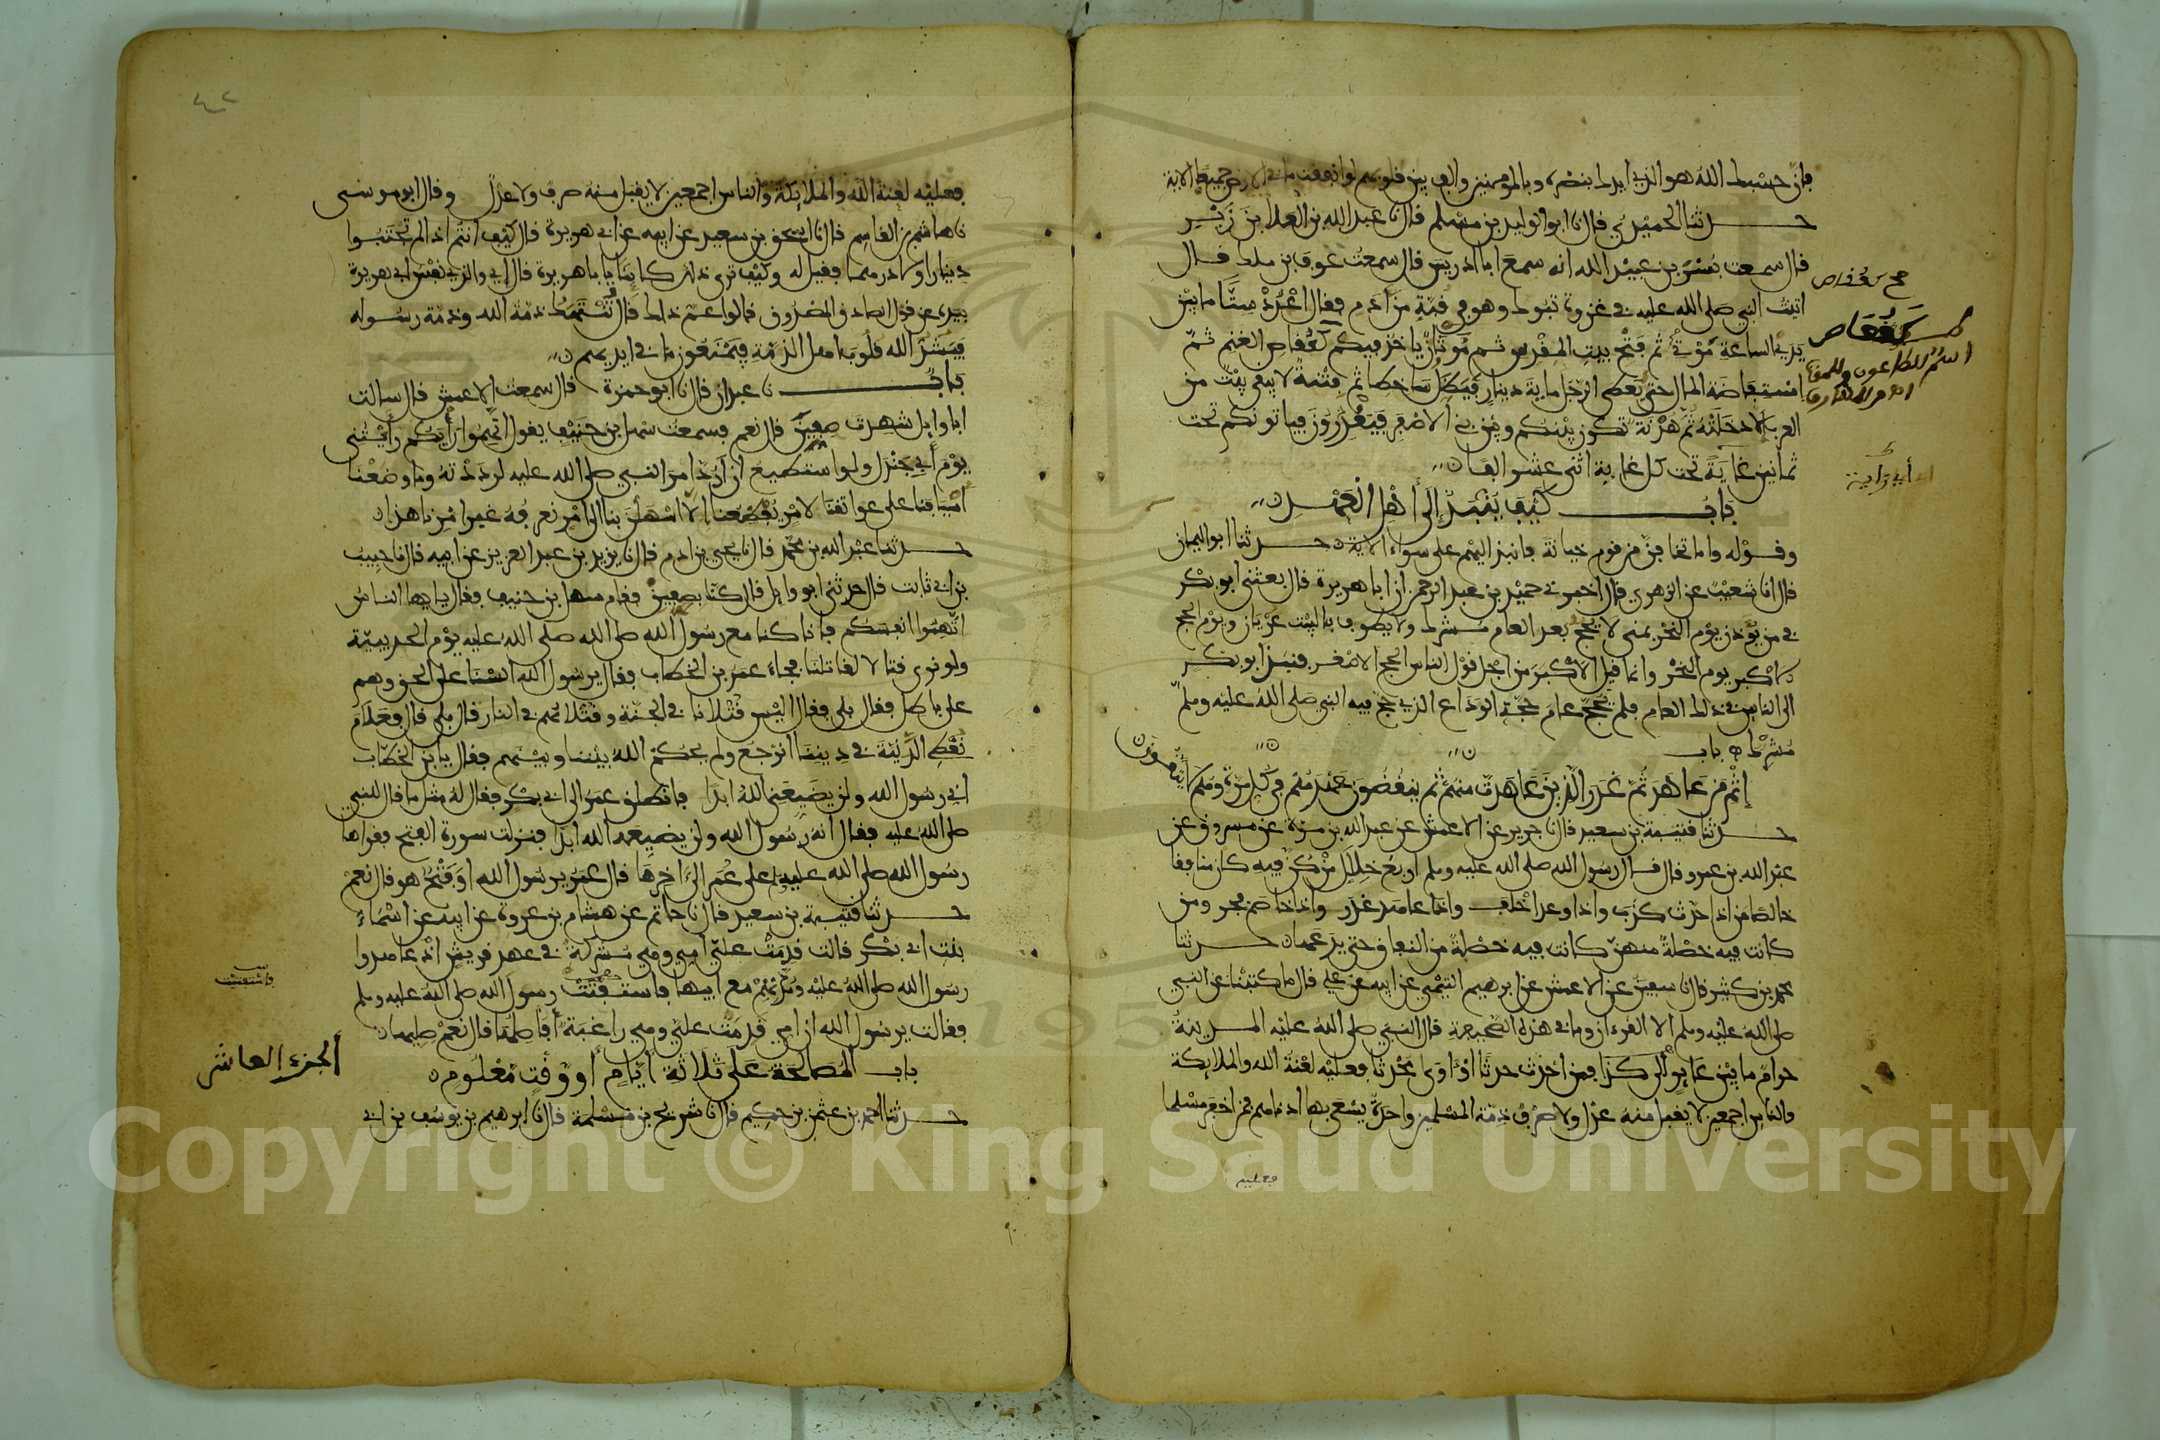 فإن حسبك الله هو الذي أيدك بنصره وبالمؤمنين وألف بين قلوبهم لو أنفقت ما في الارض جميعا الآية
حدثنا الحميدي قال نا ابو الوليد بن مسلم قال نا عبد الله بن العلا بن زبر
قال سمعت بسر بن عبيد الله انه سمع ابا ادريس قال سمعت عوف بن ملك قال
اتيت النبي صلى الله عليه في غزوة تبوك وهو في قبة من أدم فقال اعدد ستا ما بين
يدي الساعة موتي ثم فتح بيت المقدس ثم موتان ياخذ فيكم كقعاص الغنم ثم
استفاضة المال حتى يعطى الرجل ماية دينار فيظل ساخطا ثم فتنة لا يبقى بيت من
العرب الا دخلته ثم هدنة تكون بينكم وبين بني الاصفر فيغدرون فياتونكم تحت
ثمانين غاية تحت كل غاية اثنى عشر الفا
باب كيف ينبذ إلى أهل العهد
وقوله واما تخافن من قوم خيانة فانبذ اليهم على سواء الاية حدثنا ابو اليمان
قال انا شعيب عن الزهري قال اخبرني حميد بن عبد الرحمن ان ابا هريرة قال بعثني ابو بكر
في من يوذن يوم النحر بمنى لا يحج بعد العام مشرك ولا يطوف بالبيت عريان ويوم الحج
الاكبر يوم النحر وانما قيل الاكبر من اجل قول الناس الحج الاصغر فنبذ ابو بكر
الى الناس في ذلك العام فلم يحج عام حجة الوداع الذي حج فيه النبي صلى الله عليه وسلم
مشرك باب
إثم من عاهد ثم غدر الذين عاهدت منهم ثم ينقضون عهدهم في كل مرة وهم لا يتقون
حدثنا قتيبة بن سعيد قال نا جرير عن الاعمش عن عبد الله بن مرة عن مسروق عن
عبد الله بن عمرو قال قال رسول الله صلى الله عليه وسلم اربع خلال من كن فيه كان منافقا
خالصا من اذا حدث كذب واذا وعد اخلف واذا عاهد غدر واذا خاصم فجر ومن
كانت فيه خصلة منهن كانت فيه خصلة من النفاق حتى يدعها حدثنا
محمد بن كثير قال نا سفين عن الاعمش عن ابرهيم التيمي عن ابيه عن علي قال ما كتبنا عن النبي
صلى الله عليه وسلم الا القرءان وما في هذه الصحيفة قال النبي صلى الله عليه المدينة
حرام ما بين عاير إلى كذا فمن احدث حدثا أو ءاوى محدثا فعليه لعنة الله والملايكة
والناس اجمعين لا يقبل منه عدل ولا صرف ذمة المسلمين واحدة يسعى بها أدناهم فمن اخفر مسلما
فعليه
كقعاص
فعليه لعنة الله والملايكة والناس اجمعين لا يقبل منه صرف ولا عدل وقال ابو موسى
نا هاشم بن القاسم قال نا اسحق بن سعيد عن ابيه عن ابي هريرة قال كيف انتم اذا لم تجتبوا
دينارا ولا درهما فقيل له وكيف ترى ذلك كاينا يابا هريرة قال اي والذي نفس ابي هريرة
بيده عن قول الصادق المصدوق قالوا عم ذلك قال تنتهك ذمة الله وذمة رسوله
فيشد الله قلوب اهل الذمة فيمنعون ما في ايديهم
باب نا عبدان قال نا ابو حمزة قال سمعت الاعمش قال سالت
ابا وايل شهدت صفين قال نعم فسمعت سهل بن حنيف يقول اتهموا رأيكم رأيتني
يوم أبي جندل ولو استطيع ان أرد امر النبي صلى الله عليه لرددته وما وضعنا
اسيافنا على عواتقنا لامر يفظعنا الا اسهلن بنا الى امر نعرفه غير امرنا هذا
حدثنا عبد الله بن محمد قال نا يحيى بن ادم قال نا يزيد بن عبد العزيز عن ابيه قال نا حبيب
بن ابي ثابت قال حدثني ابو وايل قال كنا بصفين فقام سهل بن حنيف فقال يا ايها الناس
اتهموا انفسكم فانا كنا مع رسول الله صلى الله عليه يوم الحديبية
ولو نرى قتالا لقاتلنا فجاء عمر بن الخطاب فقال يرسول الله السنا على الحق وهم
على باطل فقال بلى فقال اليس قتلانا في الجنة وقتلاهم في النار قال بلى قال فعلام
نعطي الدنية في ديننا أنرجع ولم يحكم الله بيننا وبينهم فقال يا بن الخطاب
اني رسول الله ولن يضيعني الله ابدا فانطلق عمر الى ابي بكر فقال له مثل ما قال للنبي
صلى الله عليه فقال انه رسول الله ولن يضيعه الله ابدا فنزلت سورة الفتح فقراها
رسول الله صلى الله عليه على عمر الى ءاخرها قال عمر يرسول الله اوفتح هو قال نعم
حدثنا قتيبة بن سعيد قال نا حاتم عن هشام بن عروة عن ابيه عن اسماء
بنت ابي بكر قالت قدمت علي أمي وهي مشركة في عهد قريش اذ عاهدوا
رسول الله صلى الله عليه ومدتهم مع ابيها فاستفتت رسول الله صلى الله عليه وسلم
فقالت يرسول الله ان امي قدمت علي وهي راغبة أفاصلها قال نعم صليها
باب المصالحة على ثلاثة أيام أو وقت معلوم
حدثنا احمد بن عثمن بن حكيم قال نا شريح بن مسلمة قال نا ابرهيم بن يوسف بن ابي
الجزء العاشر
Copyright © King Saud University